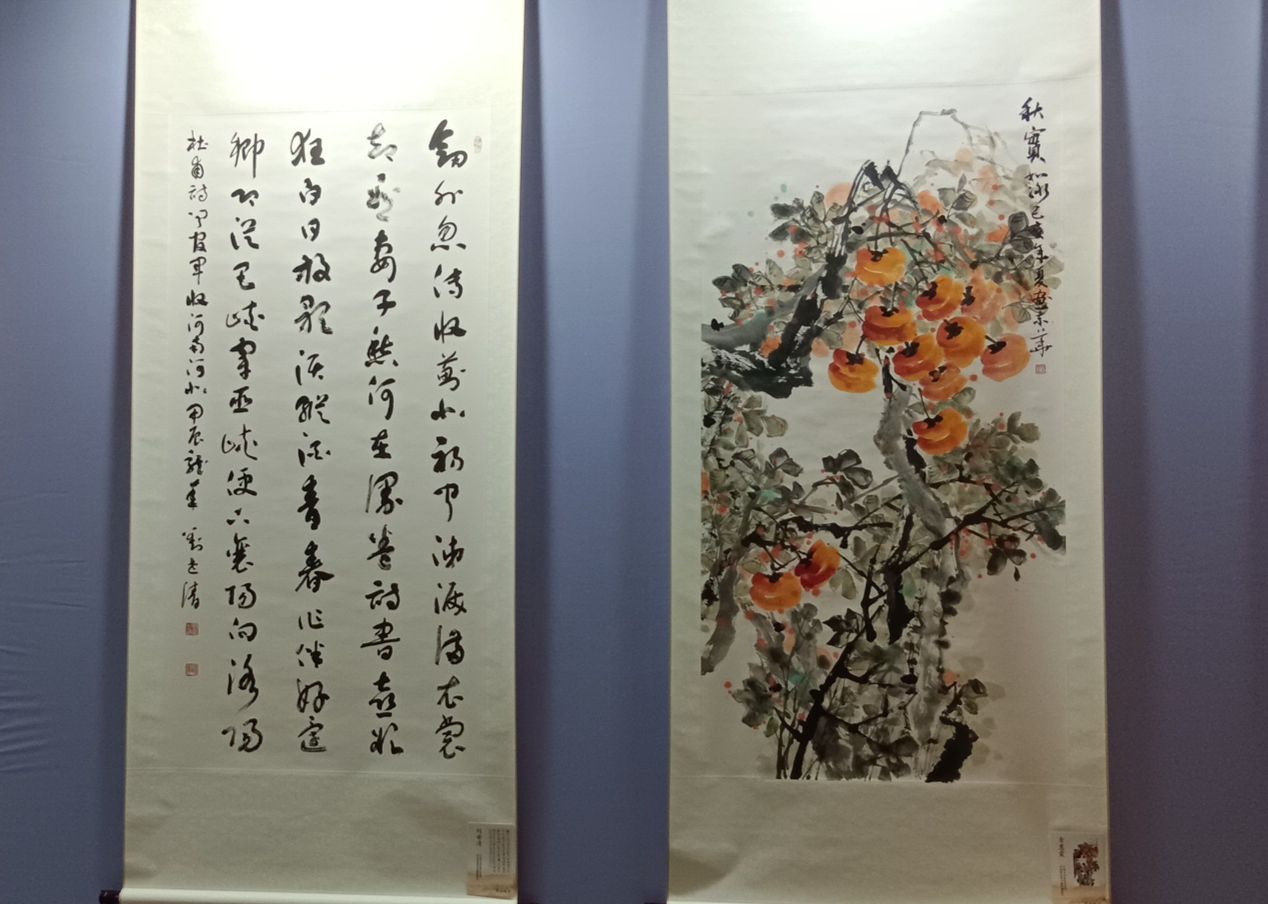 劍外忽傳收薊北初聞涕淚滿衣裳
却看妻子愁何在漫卷詩書喜欲
狂白日放歌須縱酒青春作伴好還
鄉即從巴峽穿巫峽便下襄陽向洛陽
杜甫詩聞官軍收河南河北甲辰龍年 劉清
秋實 己亥年夏於京華